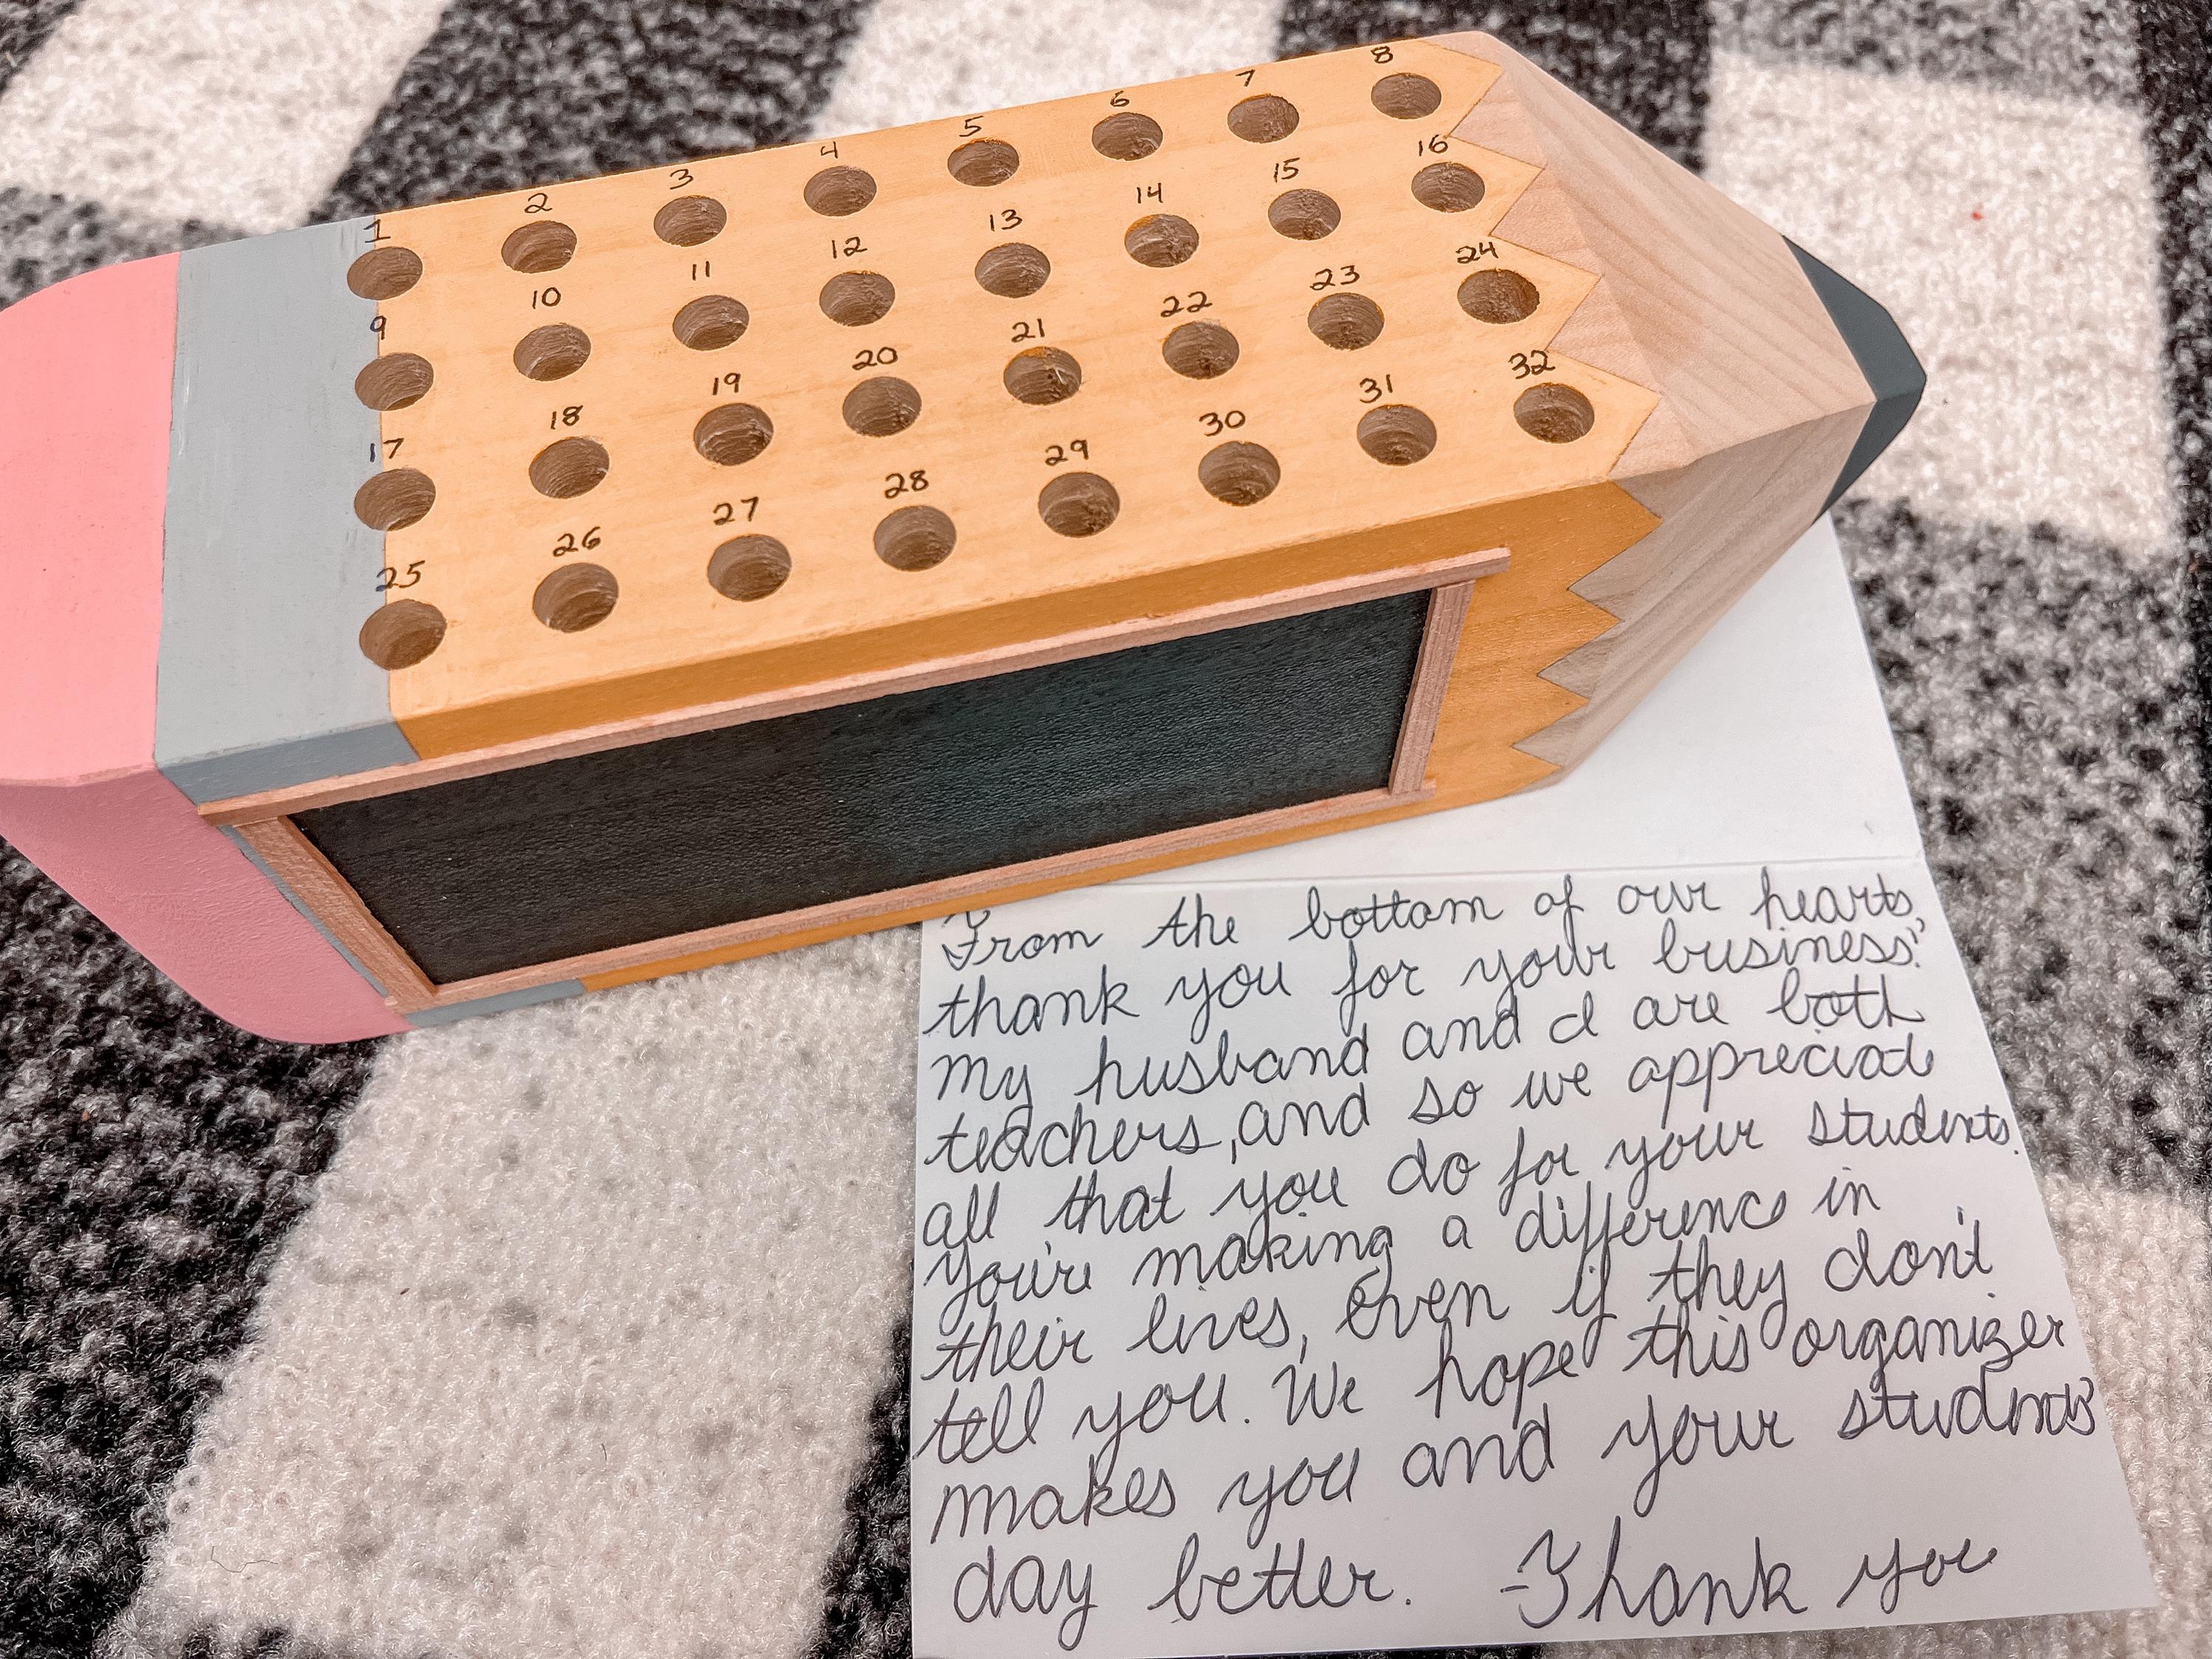 1 2 3 4 5 6 7 8
9 10 11 12 13 14 15 16
17 18 19 20 21 22 23 24
25 26 27 28 29 30 31 32
From the bottom of our hearts,
thank you for your business!
my husband and I are both
teachers, and so we appreciate
all that you do for your students.
you're making a difference in
their lives, even if they don't
tell you. We hope this organizer
makes you and your students'
day better. -Thank you